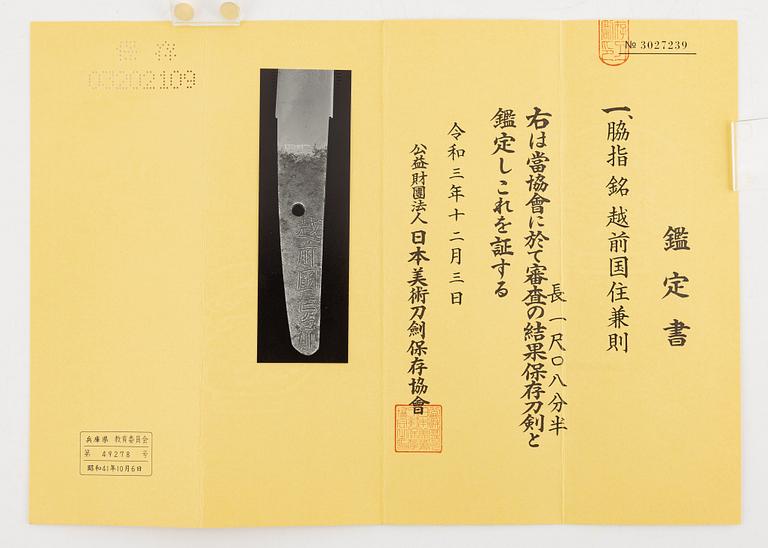 № 3027239
鑑定書
一、脇指 銘 越前国住兼則
長一尺〇八分半
右は當協會に於て審査の結果保存刀剣と
鑑定しこれを証する
令和三年十二月三日
公益財團法人 日本美術刀劍保存協會
保存
越前國住兼則
兵庫県 教育委員会
第 49278 号
昭和41年10月6日